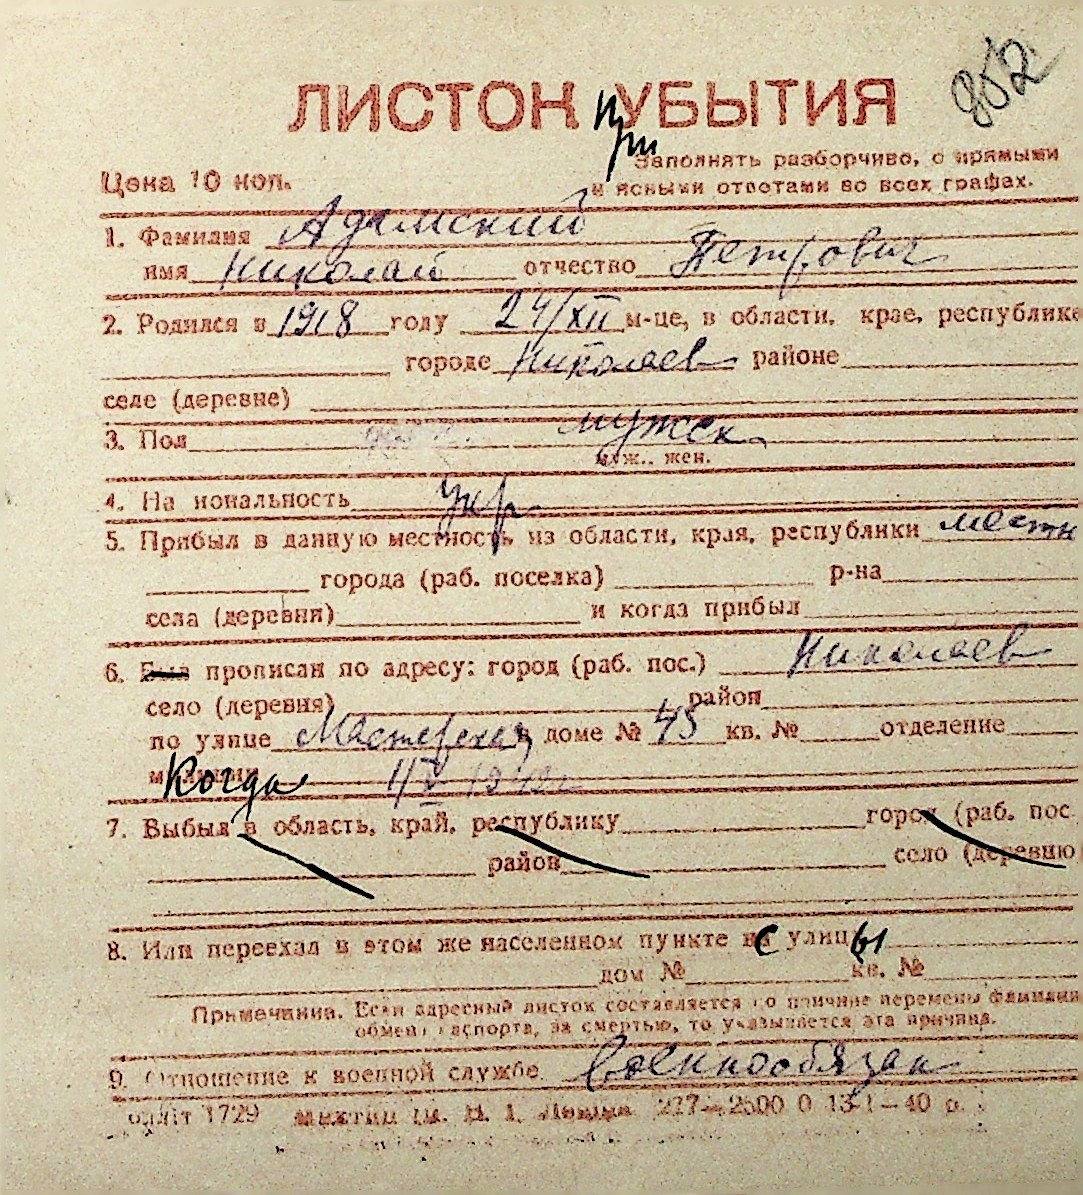 852
ЛИСТОК при УБЫТИЯ
Заполнять разборчиво, с прямыми
Цена 10 коп. и ясными ответами во всех графах.
1. Фамилия Адамский
имя Николай отчество Петрович
2. Родился в 1918 году 24/XII м-це, в области, крае, республике
городе Николаев районе
селе (деревне)
3. Пол мужск.
муж., жен.
4. На иональность Укр.
5. Прибыл в данную местность из области, края, республики местн
города (раб. поселка) р-на
села (деревни) и когда прибыл
6. Был прописан по адресу: город (раб. пос.) Николаев
село (деревня) район
по улице Мастерская в доме № 45 кв. № отделение
милиции Когда
7. Выбыл в область, край, республику город (раб. пос
район село (деревню)
8. Или переехал в этом же населенном пункте с улицы
дом № кв. №
Примечание. Если адресный листок составляется по причине перемены фамилии
обмена паспорта, за смертью, то указывается эта причина.
9. Отношение к военной службе Военнообязан
1729 227—2500 0 13-1—40 р.